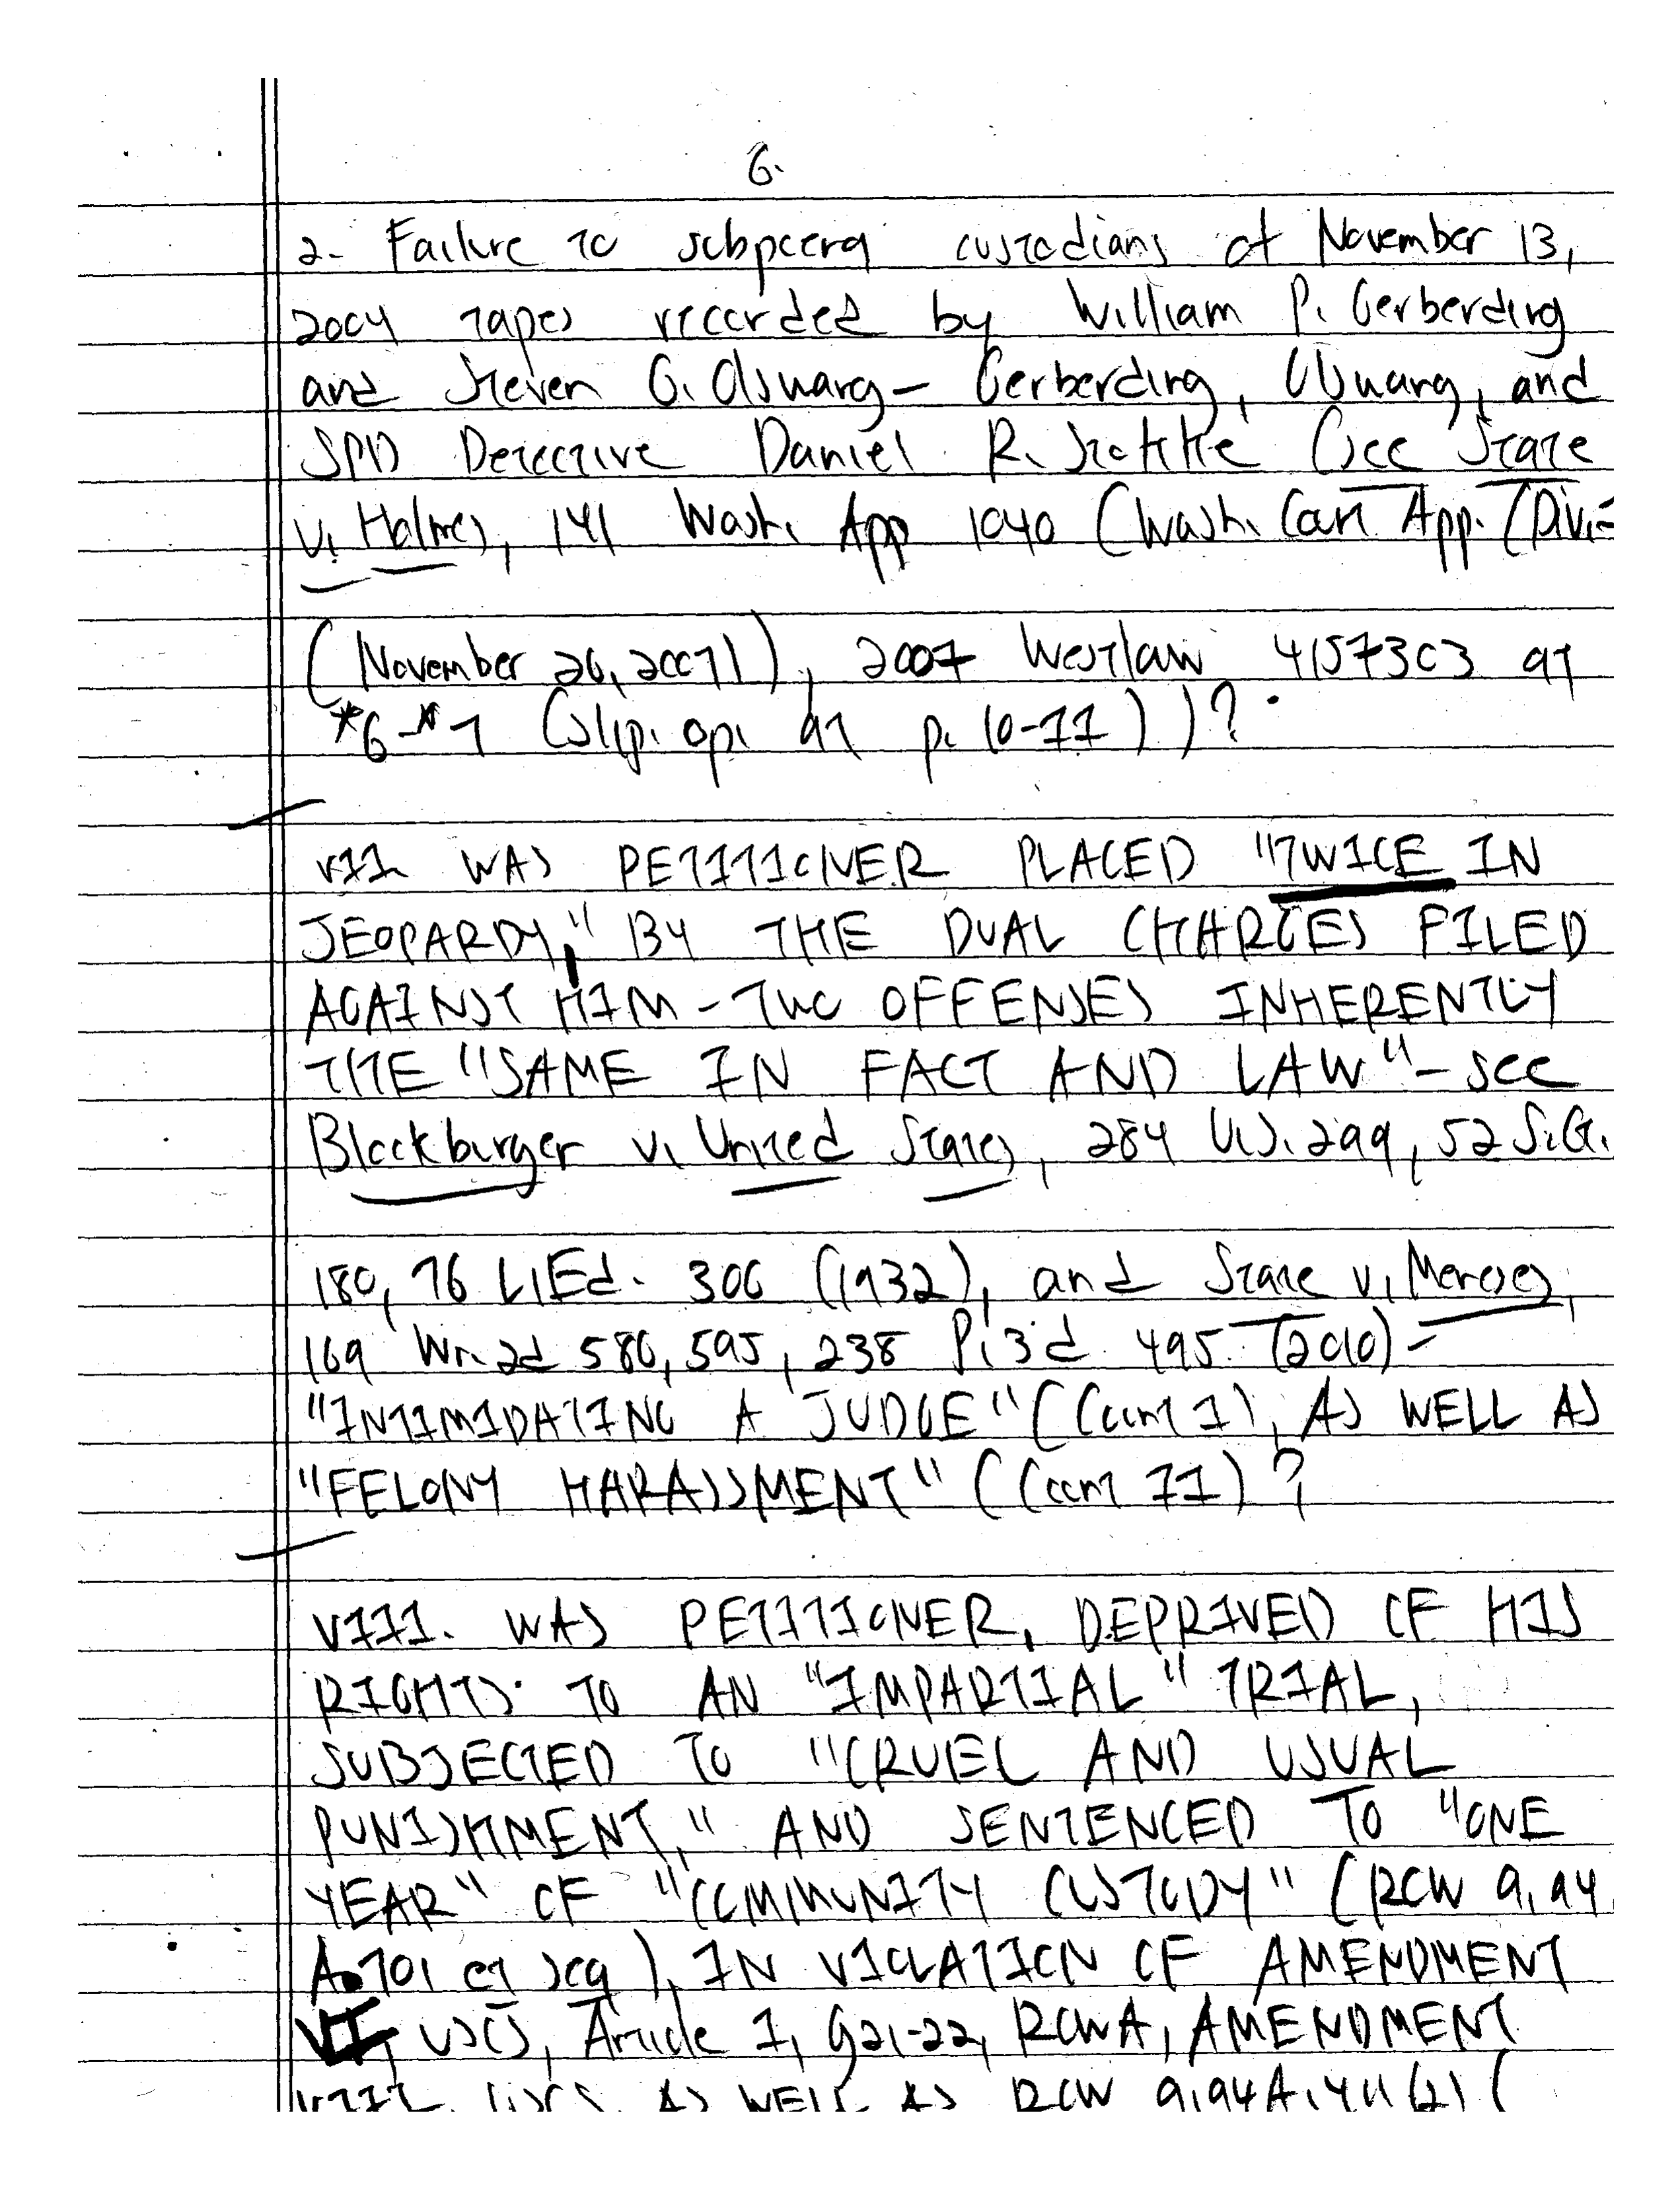 6.
2- Failure to subpoena custodians of November 13,
2004 tapes recorded by William P. Gerberding
and Steven G. Olswang- Gerberding, Olswang, and
SPD Detective Daniel R. (see State
v. Holmes, 141 Wash. App 1040 (Wash. Court App. (Div.
(November 26, 2007)), 2007 Westlaw 4157303 at
*6-*7 (slip. op. at p. 10-11))?
VII. WAS PETITIONER PLACED "TWICE IN
JEOPARDY," BY THE DUAL CHARGES FILED
AGAINST HIM - TWO OFFENSES INHERENTLY
THE "SAME IN FACT AND LAW" - see
Blockburger v. United States, 284 U.S. 299, 52 S.Ct.
180, 76 L.Ed. 306 (1932), and State v. Meneses,
169 Wn. 2d 586, 595, 238 P.3d 495 (2010) -
"INTIMIDATING A JUDGE" (Count I), AS WELL AS
"FELONY HARASSMENT" (Count II)?
VIII. WAS PETITIONER, DEPRIVED OF HIS
RIGHTS TO AN "IMPARTIAL" TRIAL,
SUBJECTED TO "CRUEL AND USUAL
PUNISHMENT," AND SENTENCED TO "ONE
YEAR" OF "COMMUNITY CUSTODY" (RCW 9.94
A.701 et seq), IN VIOLATION OF AMENDMENT
VI, USCS, Article I, §21-22, RCWA, AMENDMENT
VIII, USCS, AS WELL AS RCW 9.94A.411(2)(